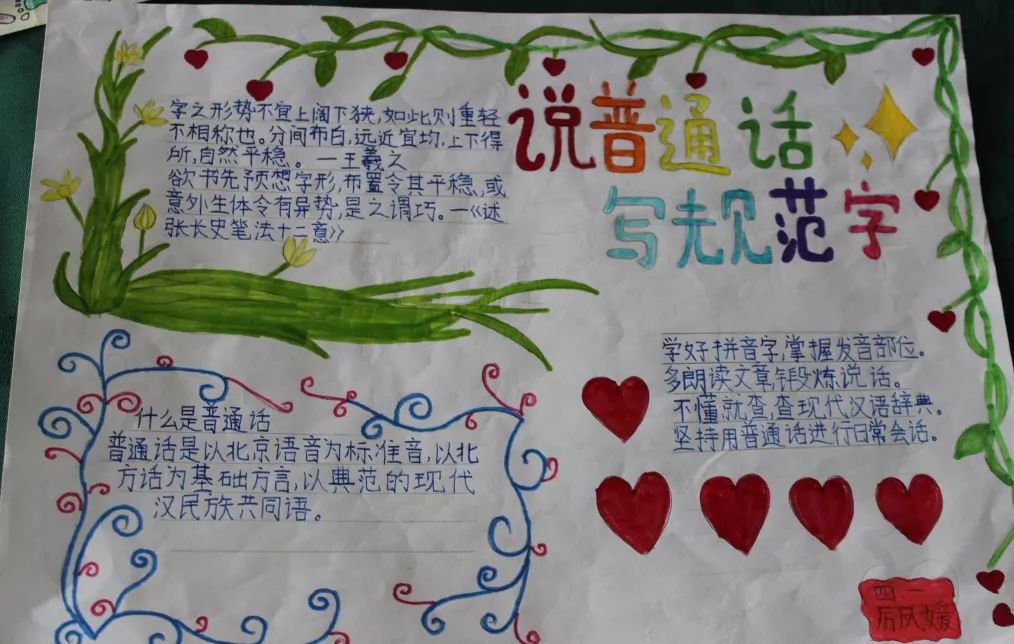 说普通话
写规范字
字之形势不宜上阔下狭,如此则重轻
不相称也。分间布白,远近宜均,上下得
所,自然平稳。—王羲之
欲书先预想字形,布置令其平稳,或
意外生体令有异势,是之谓巧。—《述
张长史笔法十二意》
什么是普通话
普通话是以北京语音为标准音,以北
方话为基础方言,以典范的现代
汉民族共同语。
学好拼音字,掌握发音部位。
多朗读文章锻炼说话。
不懂就查,查现代汉语辞典。
坚持用普通话进行日常会话。
四.一
厉风媛